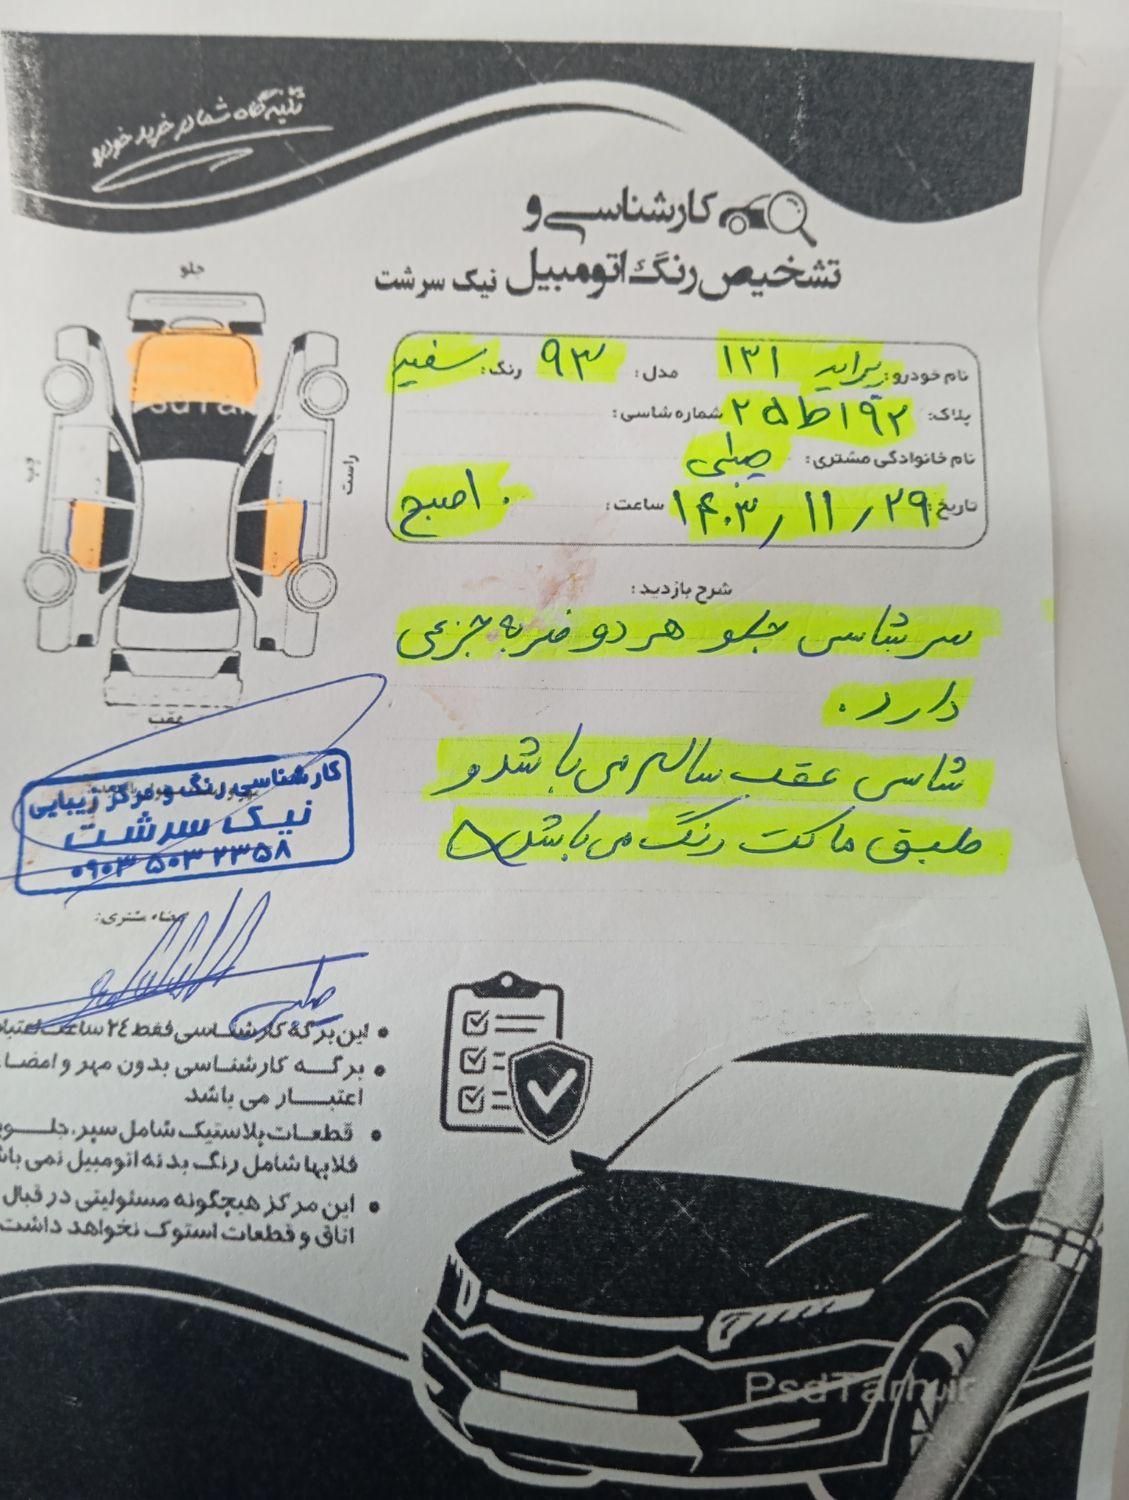 تکیه گاه شما در خرید خودرو
کارشناسی و
تشخیص رنگ اتومبیل نیک سرشت
جلو
چپ
راست
عقب
نام خودرو: پراید ۱۳۱ مدل: ۹۳ رنگ: سفید
پلاک: ۱۹۲ ط ۲۵ شماره شاسی:
نام خانوادگی مشتری: صیلی
تاریخ: ۱۴۰۳/۱۱/۲۹ ساعت: ۱۰ صبح
شرح بازدید:
سر شاسی جلو هر دو ضربه جزئی
دارد.
شاسی عقب سالم می باشد و
طبق ماکت رنگ می باشد
کارشناسی رنگ و مرکز زیبایی
نیک سرشت
۰۹۰۳ ۵۰۳ ۲۳۵۸
امضاء مشتری:
• این برگه کارشناسی فقط ۲۴ ساعت اعتبار
• برگه کارشناسی بدون مهر و امضاء
اعتبار می باشد.
• قطعات پلاستیک شامل سپر، جلو
قلابها شامل رنگ بدنه اتومبیل نمی باش
• این مرکز هیچگونه مسئولیتی در قبال
اتاق و قطعات استوک نخواهد داشت
PsdTarh.ir